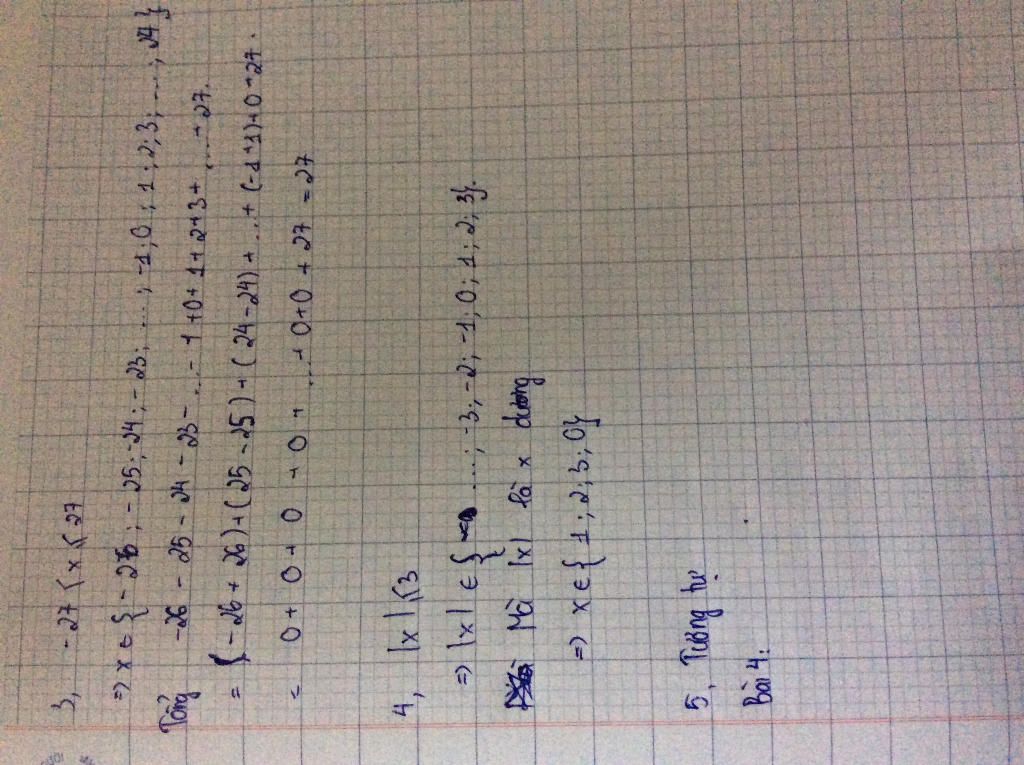 3, -27 < x ≤ 27
=> x ∈ { -26 ; -25 ; -24 ; -23 ; ... ; -1 ; 0 ; 1 ; 2 ; 3 ; ... ; 27 }
Tổng -26 - 25 - 24 - 23 - ... - 1 + 0 + 1 + 2 + 3 + ... + 27.
= (-26 + 26) + (25 - 25) + (24 - 24) + ... + (-1 + 1) + 0 + 27.
= 0 + 0 + 0 + 0 + ... + 0 + 0 + 27 = 27
4, |x| ≤ 3
=> |x| ∈ { ... ; -3 ; -2 ; -1 ; 0 ; 1 ; 2 ; 3 }.
Mà |x| là x dương
=> x ∈ { 1 ; 2 ; 3 ; 0 }
5, Tương tự
Bài 4: